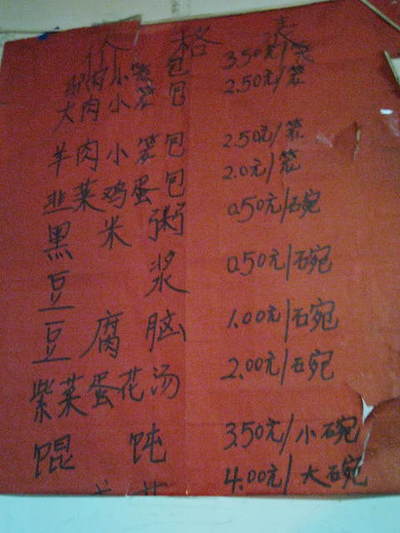 价格表
肉小笼包 3.50元/笼
大肉小笼包 2.50元/笼
羊肉小笼包 2.50元/笼
韭菜鸡蛋包 2.0元/笼
黑米粥 0.50元/碗
豆浆 0.50元/碗
豆腐脑 1.00元/碗
紫菜蛋花汤 2.00元/碗
馄饨 3.50元/小碗
4.00元/大碗